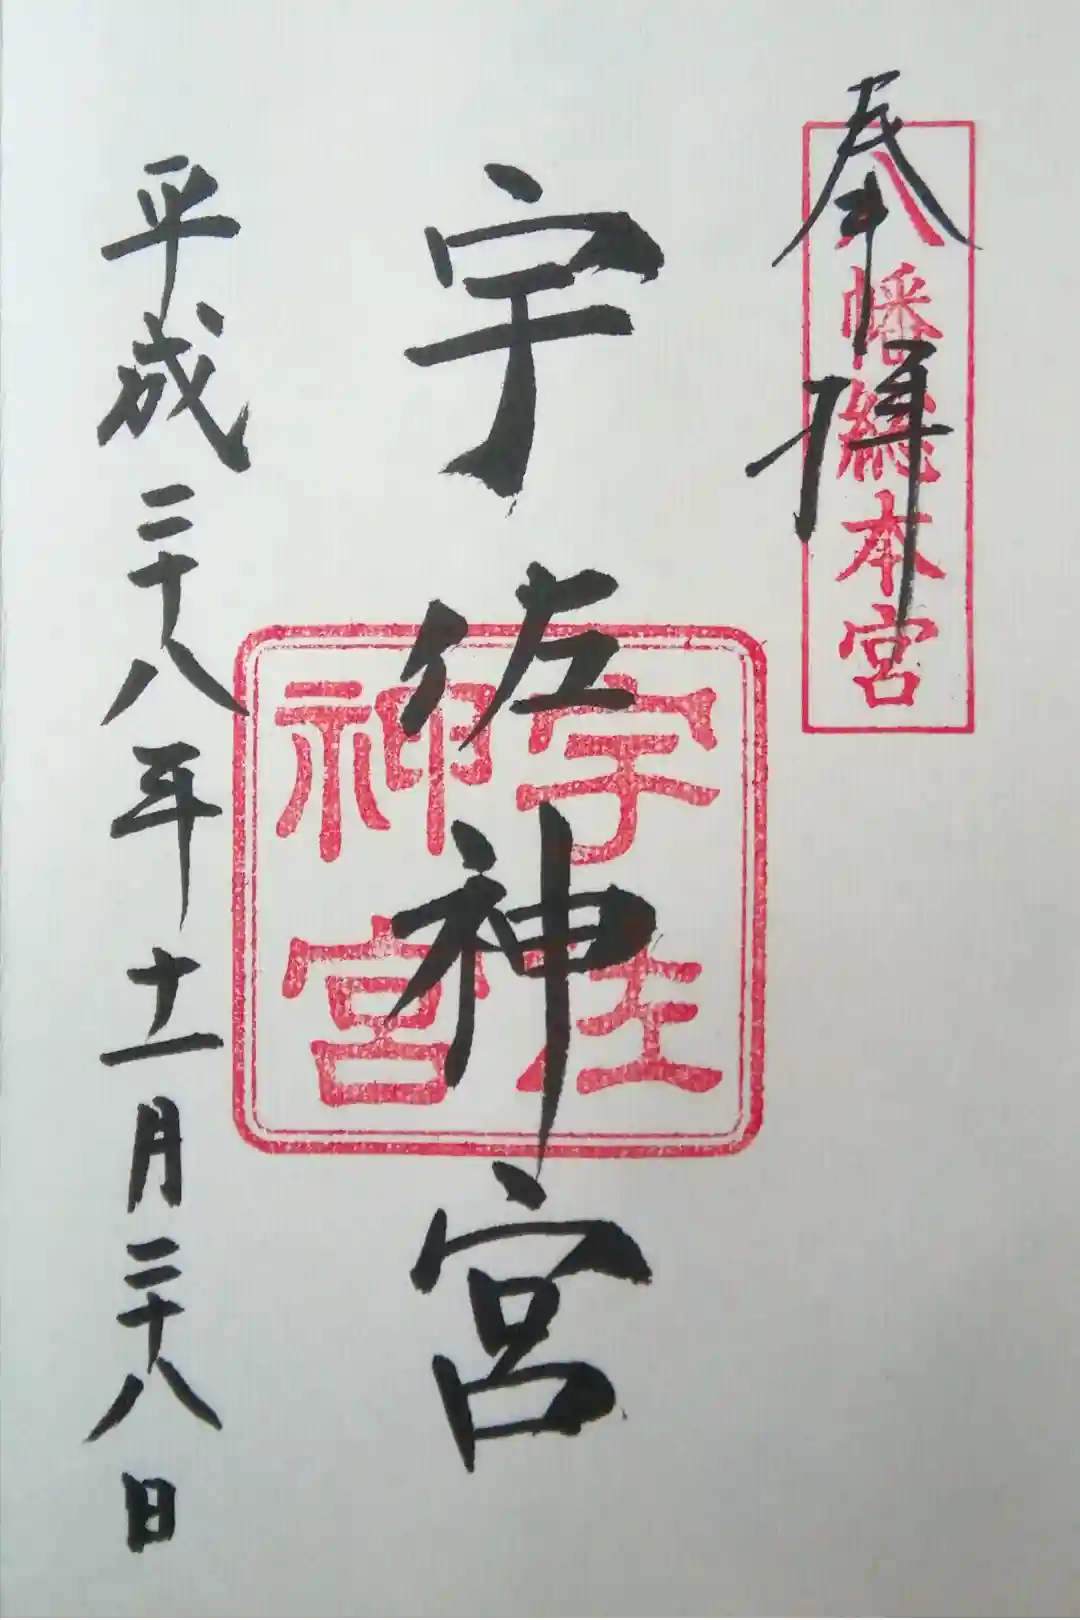 奉拝
八幡総本宮
宇佐神宮
宇佐
神宮
平成二十八年十一月二十八日